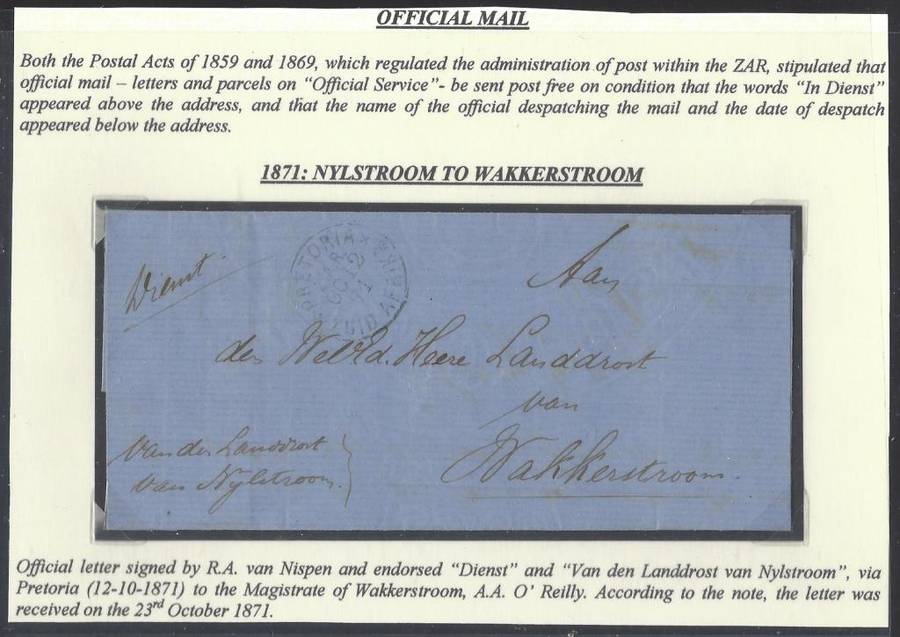 OFFICIAL MAIL
Both the Postal Acts of 1859 and 1869, which regulated the administration of post within the ZAR, stipulated that
official mail – letters and parcels on “Official Service”- be sent post free on condition that the words “In Dienst”
appeared above the address, and that the name of the official despatching the mail and the date of despatch
appeared below the address.
1871: NYLSTROOM TO WAKKERSTROOM
Dienst
PRETORIA
Aan
den Heere Landdrost
van
Wakkerstroom.
Van den Landdrost
van Nylstroom.
Official letter signed by R.A. van Nispen and endorsed “Dienst” and “Van den Landdrost van Nylstroom”, via
Pretoria (12-10-1871) to the Magistrate of Wakkerstroom, A.A. O’ Reilly. According to the note, the letter was
received on the 23rd October 1871.